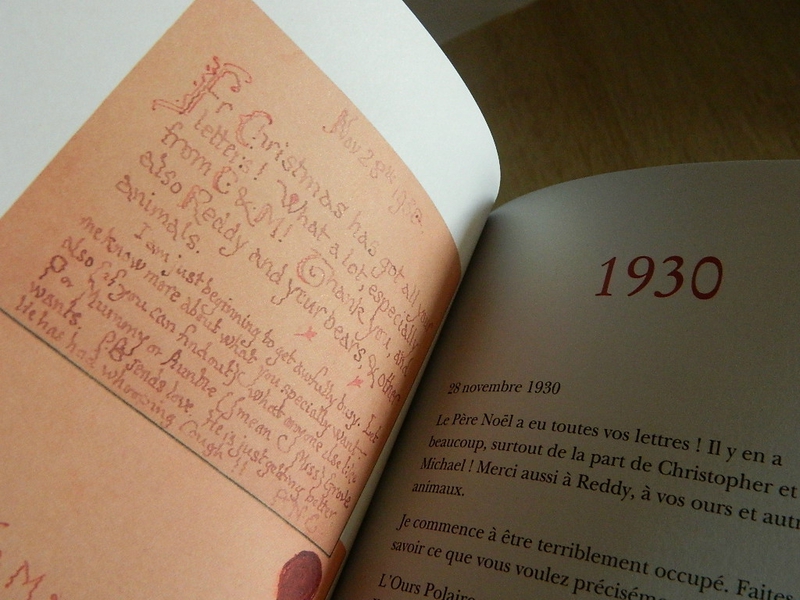 Nov 28th 1930
Fr Christmas has got all your
letters! What a lot, especially
from C & M! Thank you, and
also Reddy and your bears, & other
animals.
I am just beginning to get awfully busy. Let
me know more about what you specially want
also (if you can find out) what anyone else like
P or Mummy or Auntie (I mean Miss) Grove
wants. PB sends love. He is just getting better
He has had whooping cough!!
1930
28 novembre 1930
Le Père Noël a eu toutes vos lettres ! Il y en a
beaucoup, surtout de la part de Christopher et
Michael ! Merci aussi à Reddy, à vos ours et autr
animaux.
Je commence à être terriblement occupé. Faites
savoir ce que vous voulez précisém
L'Ours Polaire